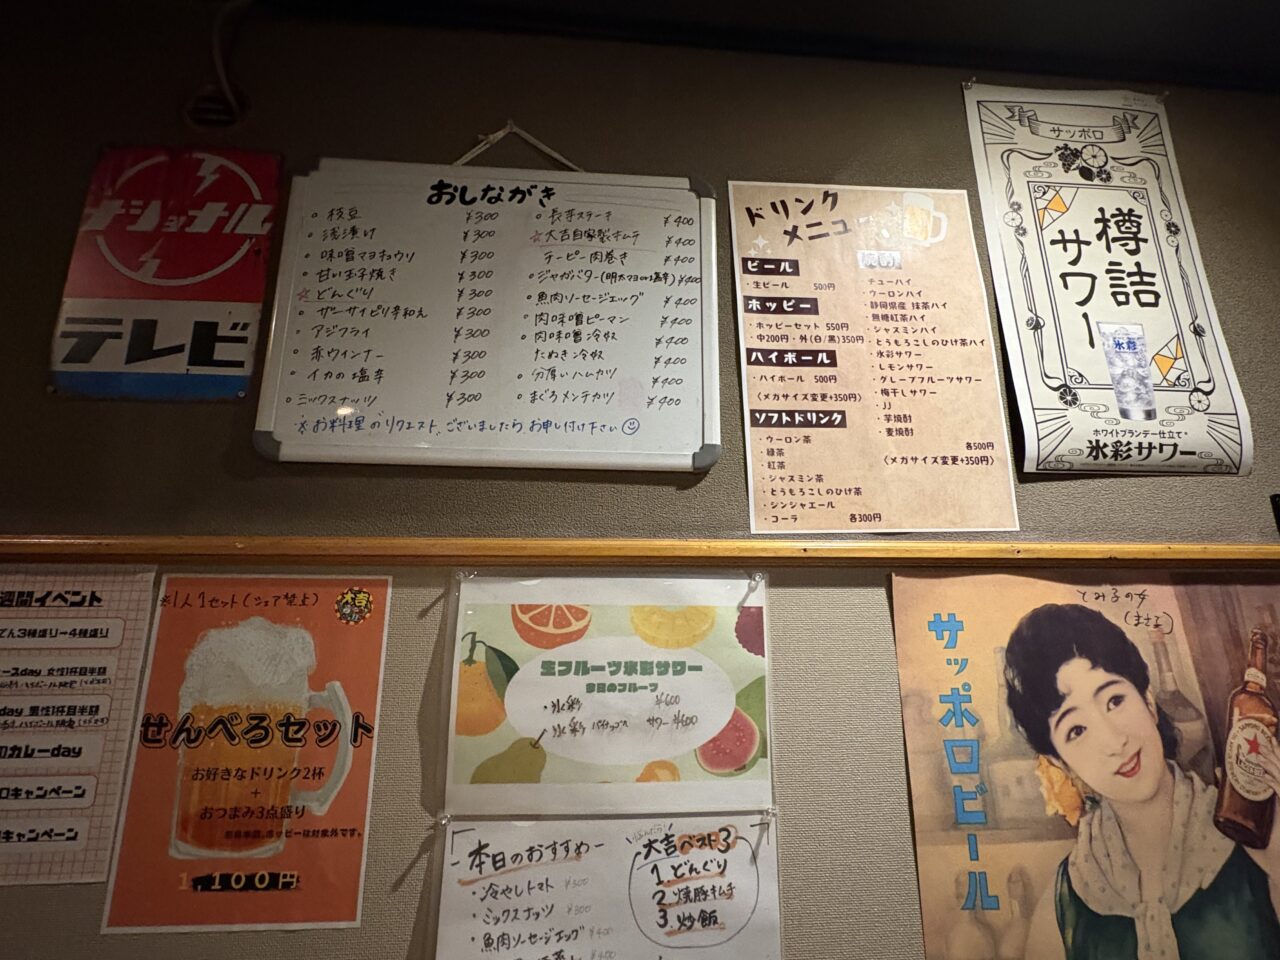 ナショナル
テレビ
おしながき
○枝豆 ¥300
○浅漬け ¥300
○味噌マヨキュウリ ¥300
○甘い玉子焼き ¥300
☆どんぐり ¥300
○ザーサイピリ辛和え ¥300
○アジフライ ¥300
○赤ウインナー ¥300
○イカの塩辛 ¥300
○ミックスナッツ ¥300
○長芋ステーキ ¥400
☆大吉自家製キムチ ¥400
肉巻き ¥400
○ジャガバター(明太マヨor塩辛) ¥400
○魚肉ソーセージエッグ ¥400
○肉味噌ピーマン ¥400
○肉味噌冷奴 ¥400
たぬき冷奴 ¥400
○分厚いハムカツ ¥400
○まぐろメンチカツ ¥400
※お料理のリクエスト、ございましたら、お申し付け下さい☺
ドリンク
メニュー
ビール
・生ビール 500円
ホッピー
・ホッピーセット 550円
・中200円・外(白/黒)350円
ハイボール
・ハイボール 500円
〈メガサイズ変更+350円〉
ソフトドリンク
・ウーロン茶
・緑茶
・紅茶
・ジャスミン茶
・とうもろこしのひげ茶
・ジンジャエール
・コーラ 各300円
・チューハイ
・ウーロンハイ
・静岡県産 抹茶ハイ
・無糖紅茶ハイ
・ジャスミンハイ
・とうもろこしのひげ茶ハイ
・氷彩サワー
・レモンサワー
・グレープフルーツサワー
・梅干しサワー
・JJ
・芋焼酎
・麦焼酎
各500円
〈メガサイズ変更+350円〉
サッポロ
樽詰
サワー
氷彩
ホワイトブランデー仕立て
氷彩サワー
週間イベント
でん3種盛り→4種盛り
day 女性1杯目半額
day 男性1杯目半額
カレーday
キャンペーン
キャンペーン
※1人1セット(シェア禁止)
大吉
せんべろセット
お好きなドリンク2杯
+
おつまみ3点盛り
ホッピーは対象外です。
1,100円
生フルーツ氷彩サワー
本日のフルーツ
・氷彩 ¥600
氷彩 パイナップル サワー ¥600
本日のおすすめ
・冷やしトマト ¥300
・ミックスナッツ ¥300
・魚肉ソーセージエッグ ¥400
大吉ベスト3
1.どんぐり
2.豚キムチ
3.炒飯
とみ子の女
(まさる)
サッポロビール